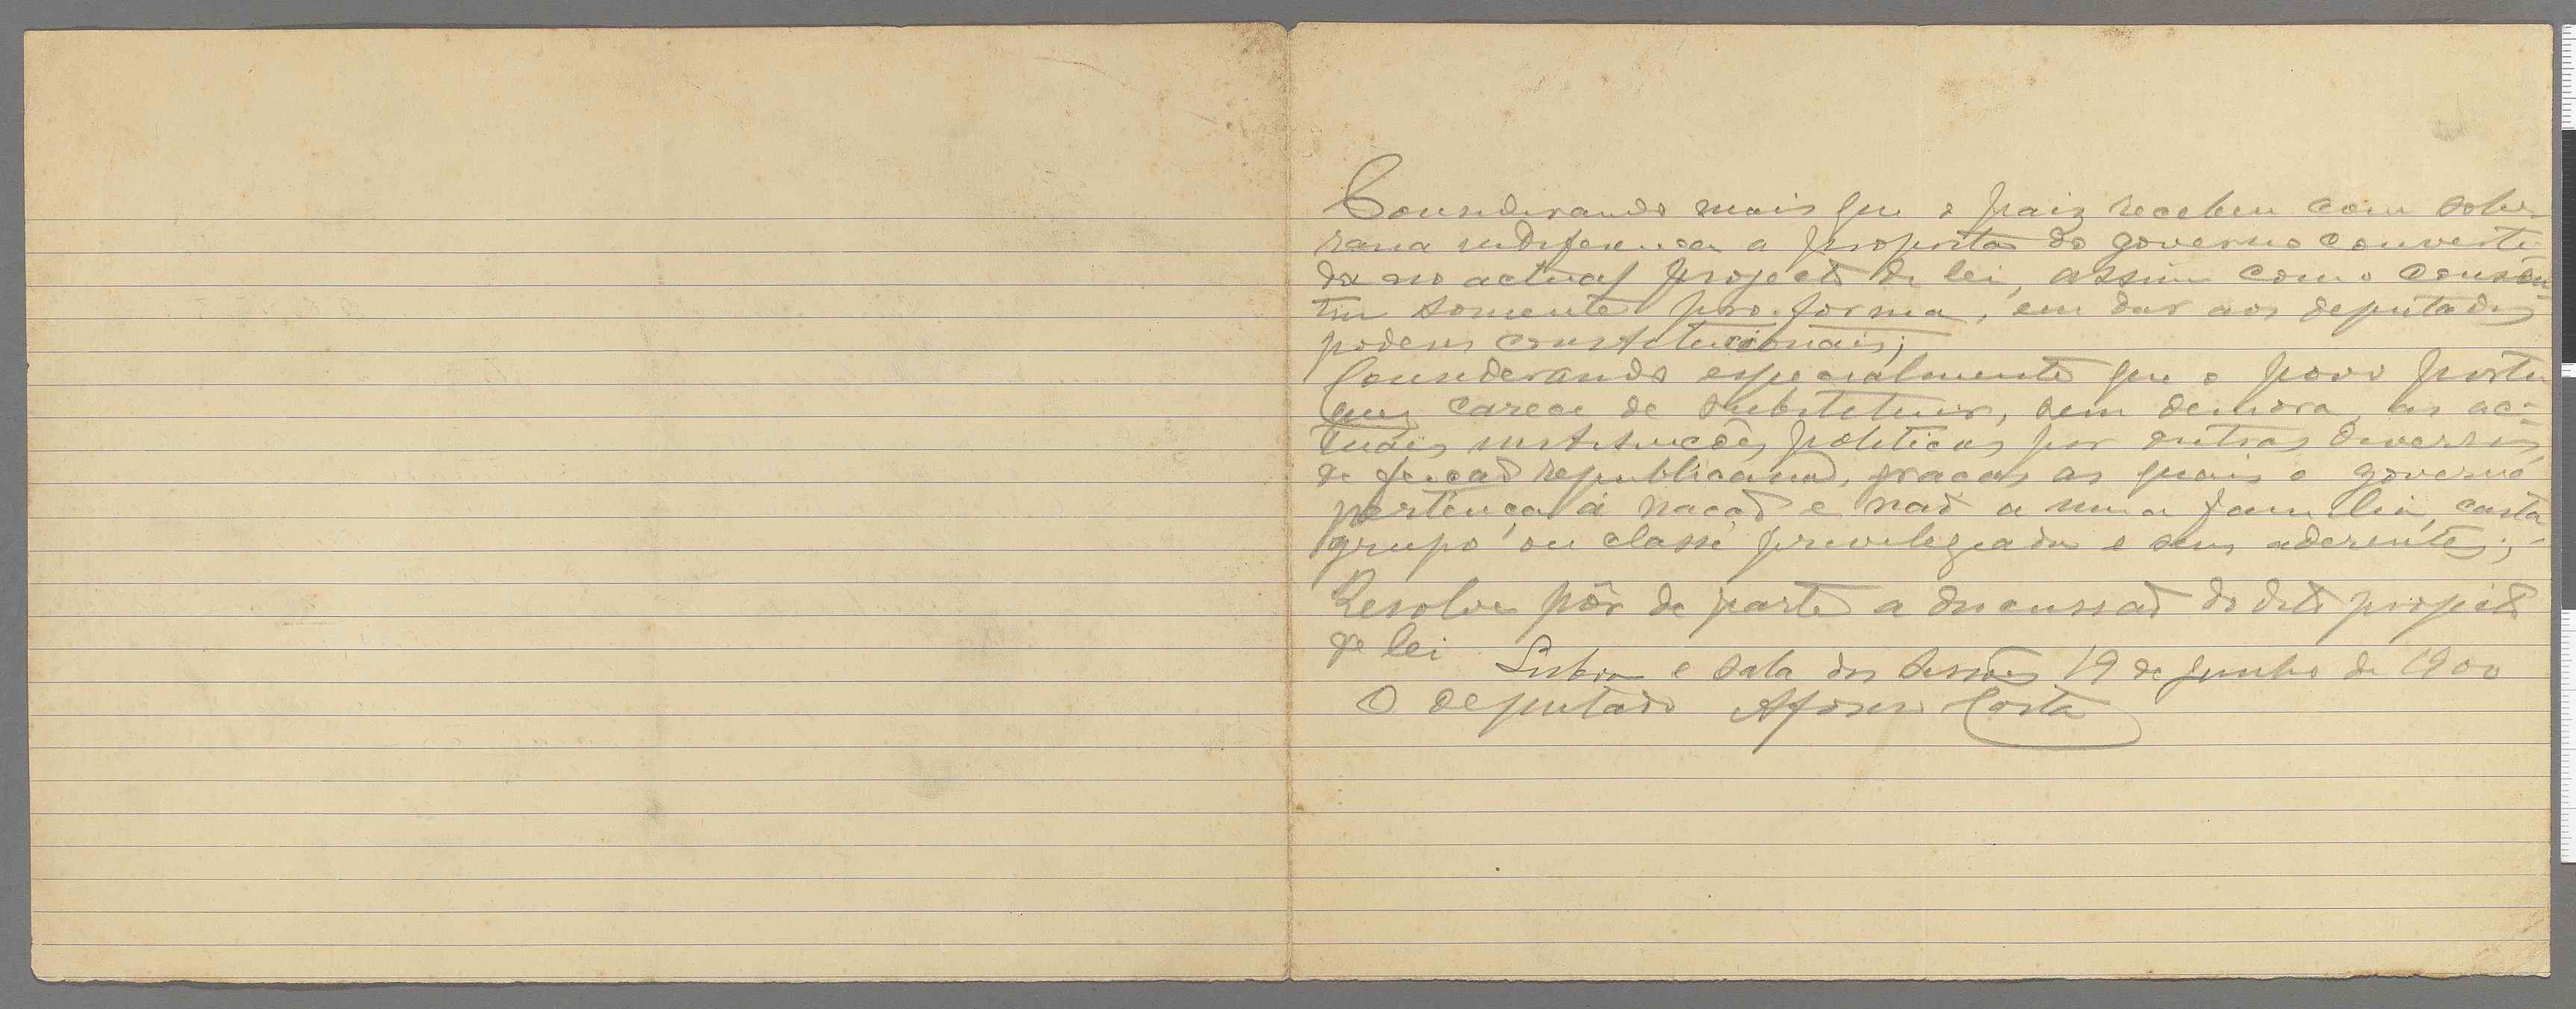 Considerando mais que o paiz recebeu com sobe-
rana indiferença a proposta do governo converti-
da no actual projecto de lei, assim como consen-
tiu somente pro-forma, em dar aos deputados
poderes constitucionais;
Considerando especialmente que o povo portu
guez carece de substituir, sem demora, as ac-
tuais instituições politicas por outras diversas,
de feição republicana, graças as quais o governo
pertença á nação e não a uma familia, casta
grupo ou classe privilegiada e seus aderentes; -
Resolve pôr de parte a discussão do dito projecto
de lei
Lisboa e sala das sessões 19 de junho de 1900
O deputado Afonso Costa